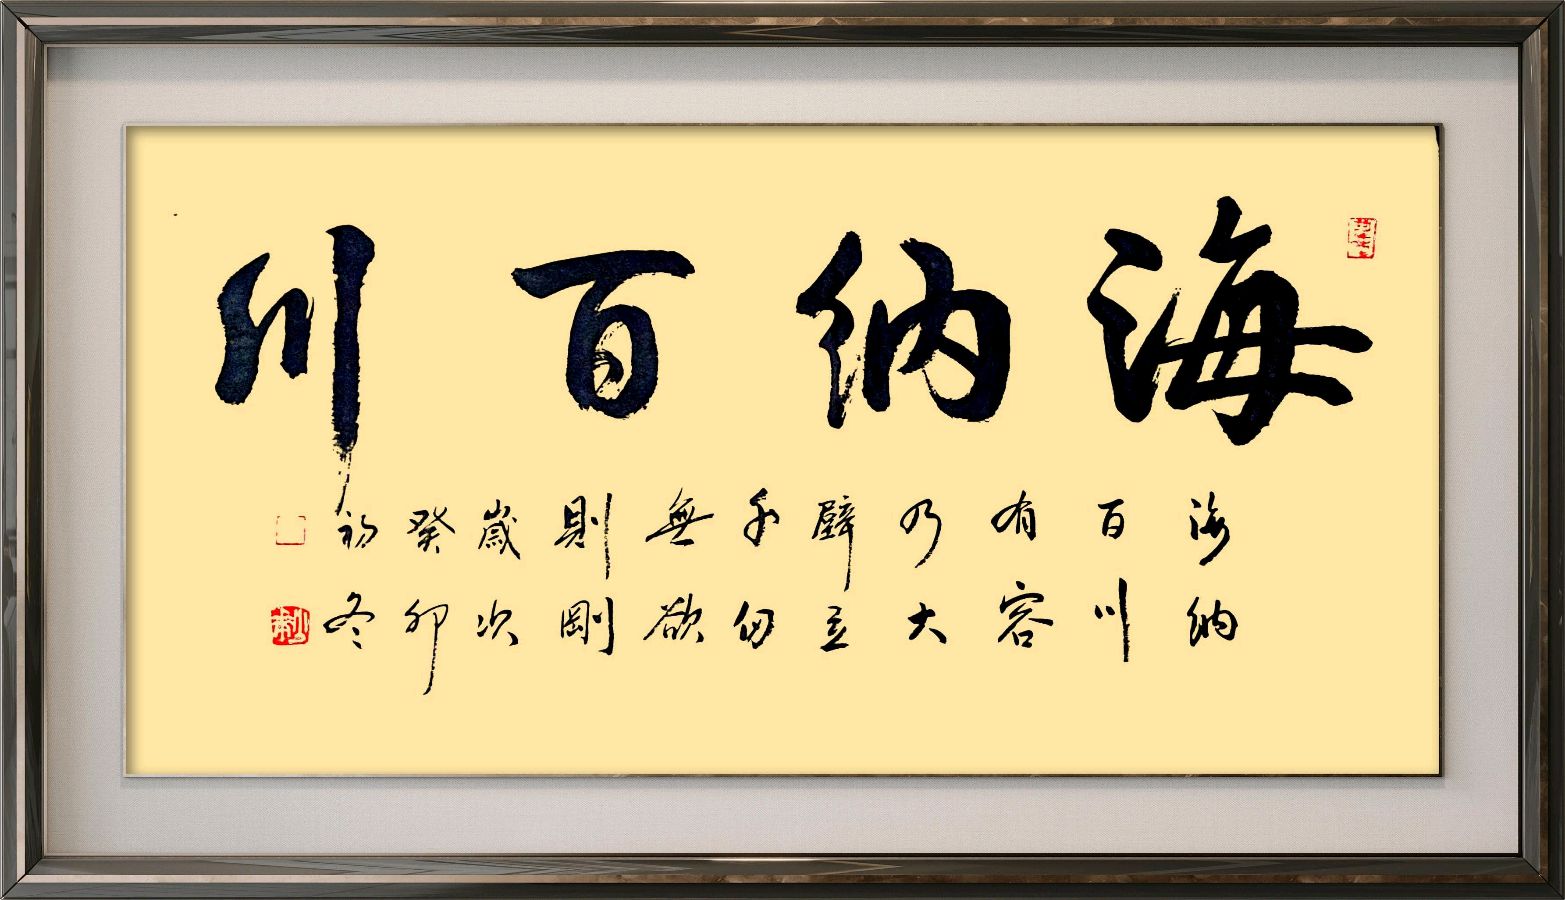 海納百川
海納
百川
有容
乃大
壁立
千仞
無欲
則剛
歲次
癸卯
初冬